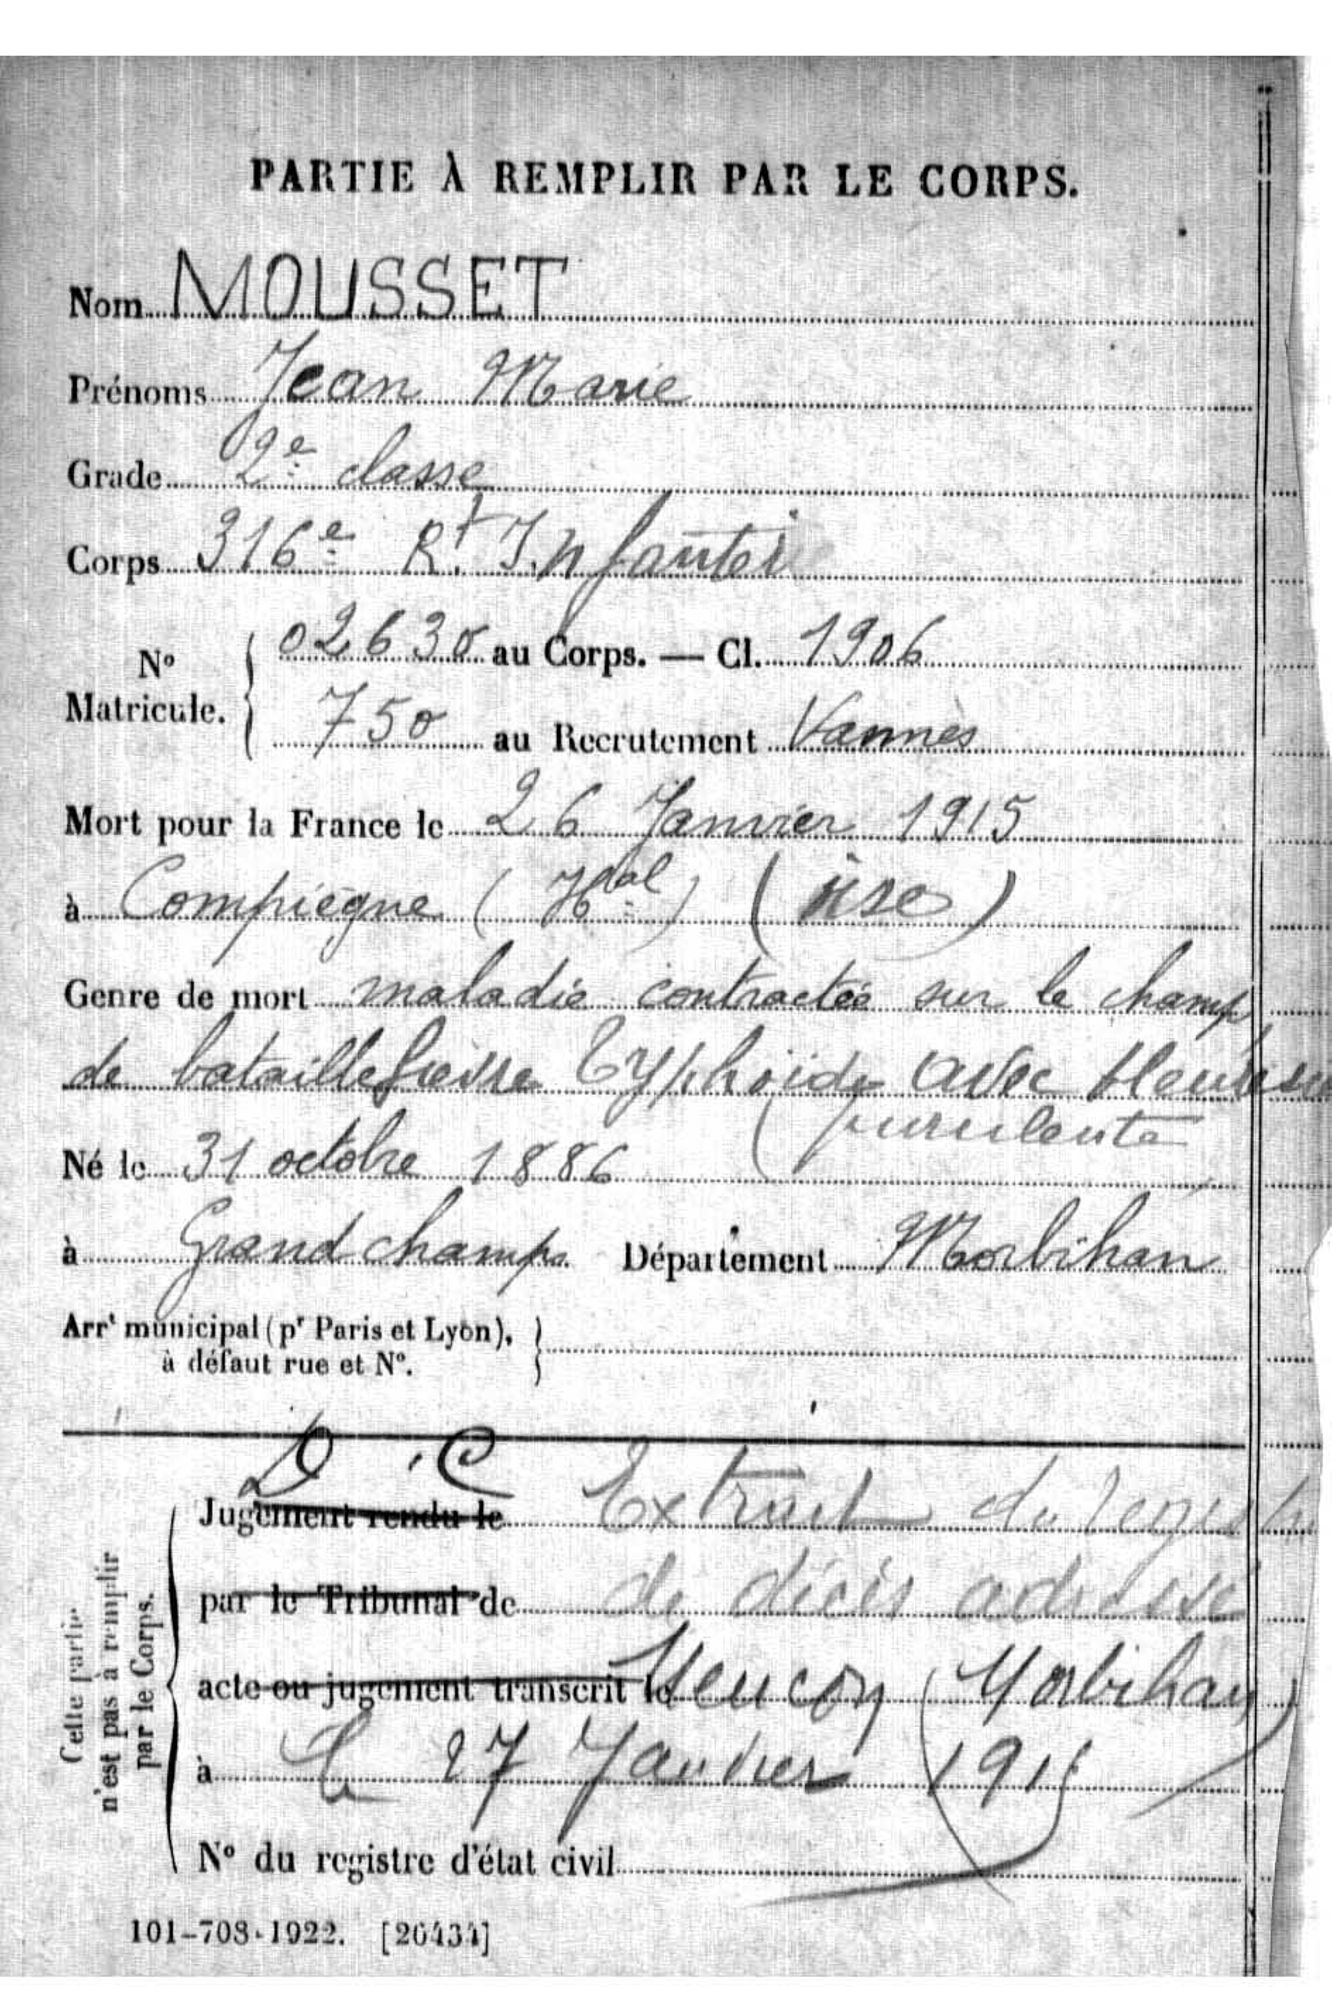 PARTIE À REMPLIR PAR LE CORPS.
Nom MOUSSET
Prénoms Jean Marie
Grade 2e classe
Corps 316e Rt Infanteri
N° Matricule. 02630 au Corps. — Cl. 1906
750 au Recrutement Vannes
Mort pour la France le 26 Janvier 1915
à Compiègne (Hal) (oise)
Genre de mort maladie contractée sur le champ
de bataille fièvre Typhoïde avec pleurésie
purulente
Né le 31 octobre 1886
à Grandchamps Département Morbihan
Arrt municipal (pr Paris et Lyon),
à défaut rue et N°.
D.C
Jugement rendu le Extrait du registre
par le Tribunal de de décès adressé
acte ou jugement transcrit le Meucon (Morbihan)
à le 27 Janvier 1915
N° du registre d'état civil
Cette partie
n'est pas à remplir
par le Corps.
101-708-1922. [26434]